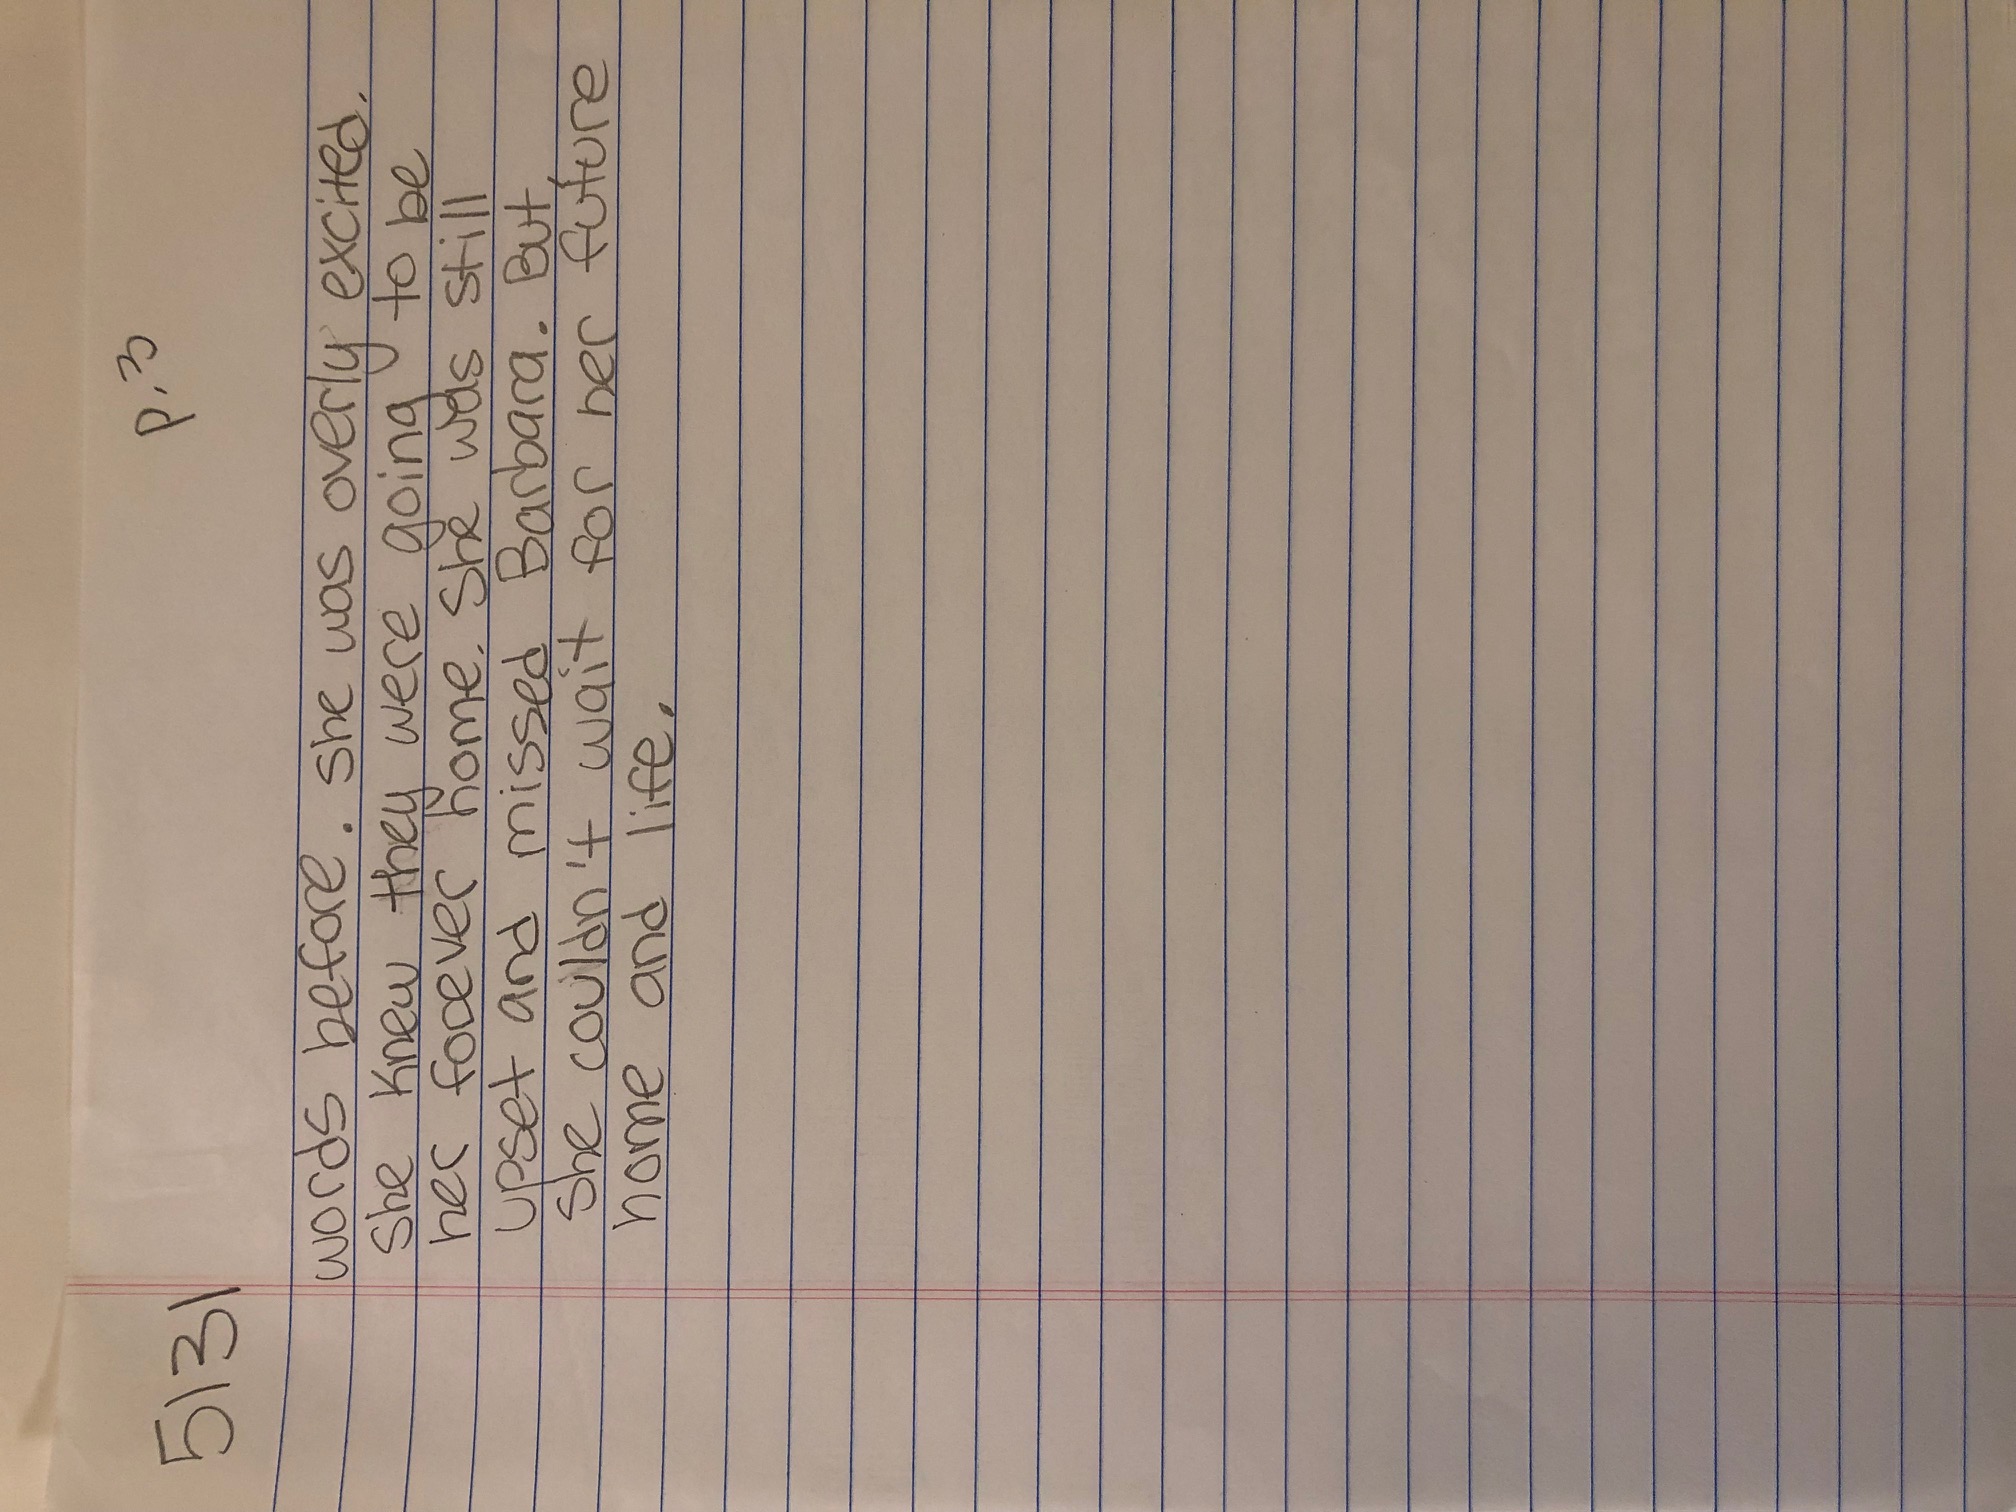 p.3
5131
words before. She was overly excited.
She knew they were going to be
her forever home. She was still
upset and missed Barbara. But,
she couldn't wait for her future
home and life.